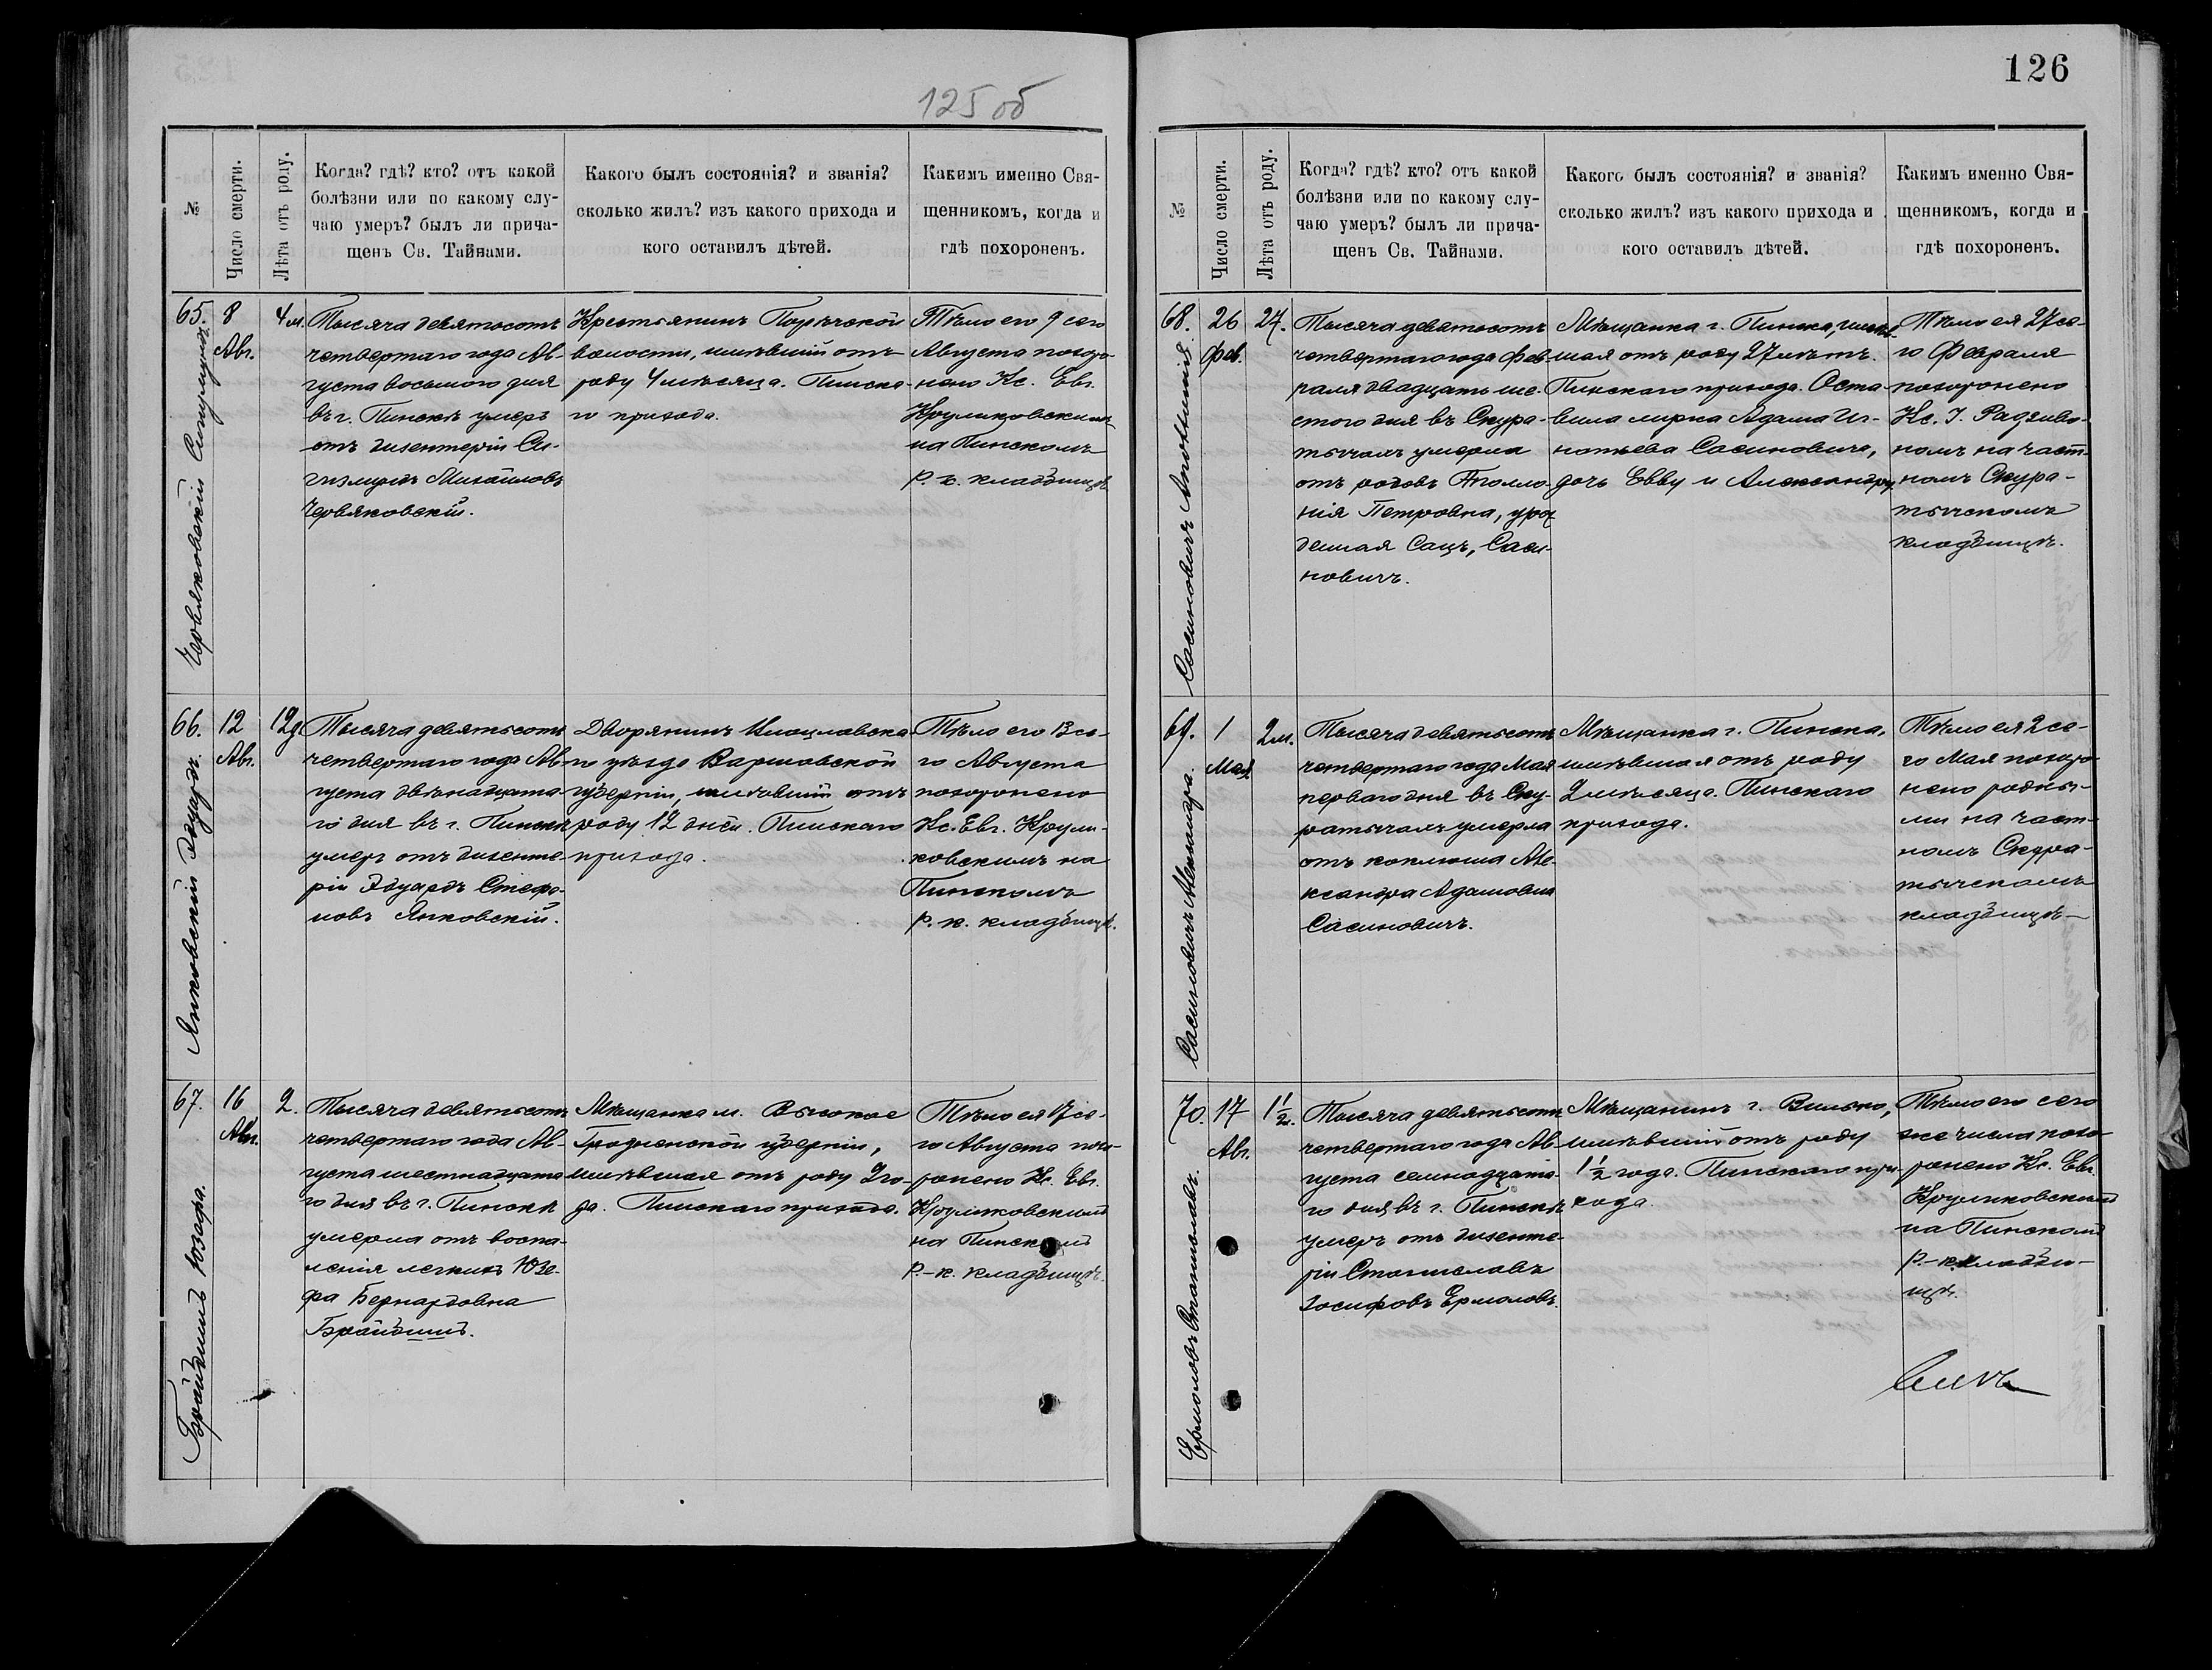 125 об
№
Число смерти.
Лѣта отъ роду.
Когда? гдѣ? кто? отъ какой
болѣзни или по какому слу-
чаю умеръ? былъ ли прича-
щенъ Св. Тайнами.
Какого былъ состоянія? и званія?
сколько жилъ? изъ какого прихода и
кого оставилъ дѣтей.
Какимъ именно Свя-
щенникомъ, когда и
гдѣ похороненъ.
65.
Червяковскій Сигизмундъ.
8
Авг.
4 м.
Тысяча девятьсотъ
четвертаго года Ав-
густа восьмого дня
въ г. Пинскѣ умеръ
отъ дизентеріи Си-
гизмундъ Михайловъ
Червяковскій.
Крестьянинъ Порѣчской
волости, имѣвшій отъ
роду 4 мѣсяца. Пинска-
го прихода.
Тѣло его 9 сего
Августа похоро-
нено Кс. Евг.
Круликовскимъ
на Пинскомъ
р.-к. кладбищѣ.
66.
Янковскій Эдуардъ.
12
Авг.
12 д
Тысяча девятьсотъ
четвертаго года Ав-
густа двѣнадцата-
го дня въ г. Пинскѣ
умеръ отъ дизенте-
ріи Эдуардъ Стефа-
новъ Янковскій.
Дворянинъ Влоцлавска-
го уѣзда Варшавской
губерніи, имѣвшій отъ
роду 12 дней. Пинскаго
прихода.
Тѣло его 13 се-
го Августа
похоронено
Кс. Евг. Крули-
ковскимъ на
Пинскомъ
р.-к. кладбищѣ.
67.
Брайдишъ Юзефа.
16
Авг.
2.
Тысяча девятьсотъ
четвертаго года Ав-
густа шестнадцата
го дня въ г. Пинскѣ
умерла отъ воспа-
ленія легкихъ Юзе-
фа Бернардовна
Брайдишъ.
Мѣщанка м. Высокое
Гродненской губерніи,
имѣвшая отъ роду 2 го-
да. Пинскаго прихода.
Тѣло ея 17 се-
го Августа похо-
ронено Кс. Евг.
Круликовскимъ
на Пинскомъ
р.-к. кладбищѣ.
126
№
Число смерти.
Лѣта отъ роду.
Когда? гдѣ? кто? отъ какой
болѣзни или по какому слу-
чаю умеръ? былъ ли прича-
щенъ Св. Тайнами.
Какого былъ состоянія? и званія?
сколько жилъ? изъ какого прихода и
кого оставилъ дѣтей.
Какимъ именно Свя-
щенникомъ, когда и
гдѣ похороненъ.
68.
Сасиновичъ Аполлонія.
26
Фев.
27.
Тысяча девятьсотъ
четвертаго года Фев-
раля двадцать ше-
стого дня въ Скура-
тычахъ умерла
отъ родовъ Аполло-
нія Петровна, урож
денная Сацъ, Саси-
новичъ.
Мѣщанка г. Пинска, имѣв-
шая отъ роду 27 лѣтъ.
Пинскаго прихода. Оста-
вила мужа Адама Иг-
натьева Сасиновича,
дочь Евву и Александру.
Тѣло ея 27 се-
го Февраля
похоронено
Кс. І. Радзиво-
номъ на част-
номъ Скура-
тычскомъ
кладбищѣ.
69.
Сасиновичъ Александра.
1
Мая
2 м.
Тысяча девятьсотъ
четвертаго года Мая
перваго дня въ Ску-
ратычахъ умерла
отъ коклюша Але-
ксандра Адамовна
Сасиновичъ.
Мѣщанка г. Пинска,
имѣвшая отъ роду
2 мѣсяца. Пинскаго
прихода.
Тѣло ея 2 се-
го Мая похоро-
нено родны-
ми на част-
номъ Скура-
тычскомъ
кладбищѣ
70.
Ермоловъ Станиславъ.
17
Авг.
1 1/2.
Тысяча девятьсотъ
четвертаго года Ав-
густа семнадцата-
го дня въ г. Пинскѣ
умеръ отъ дизенте-
ріи Станиславъ
Іосифовъ Ермоловъ.
Мѣщанинъ г. Вильно,
имѣвшій отъ роду
1 1/2 года. Пинскаго при-
хода.
Тѣло его сего
же числа похо-
ронено Кс. Евг.
Круликовскимъ
на Пинскомъ
р.-к. кладби-
щѣ.